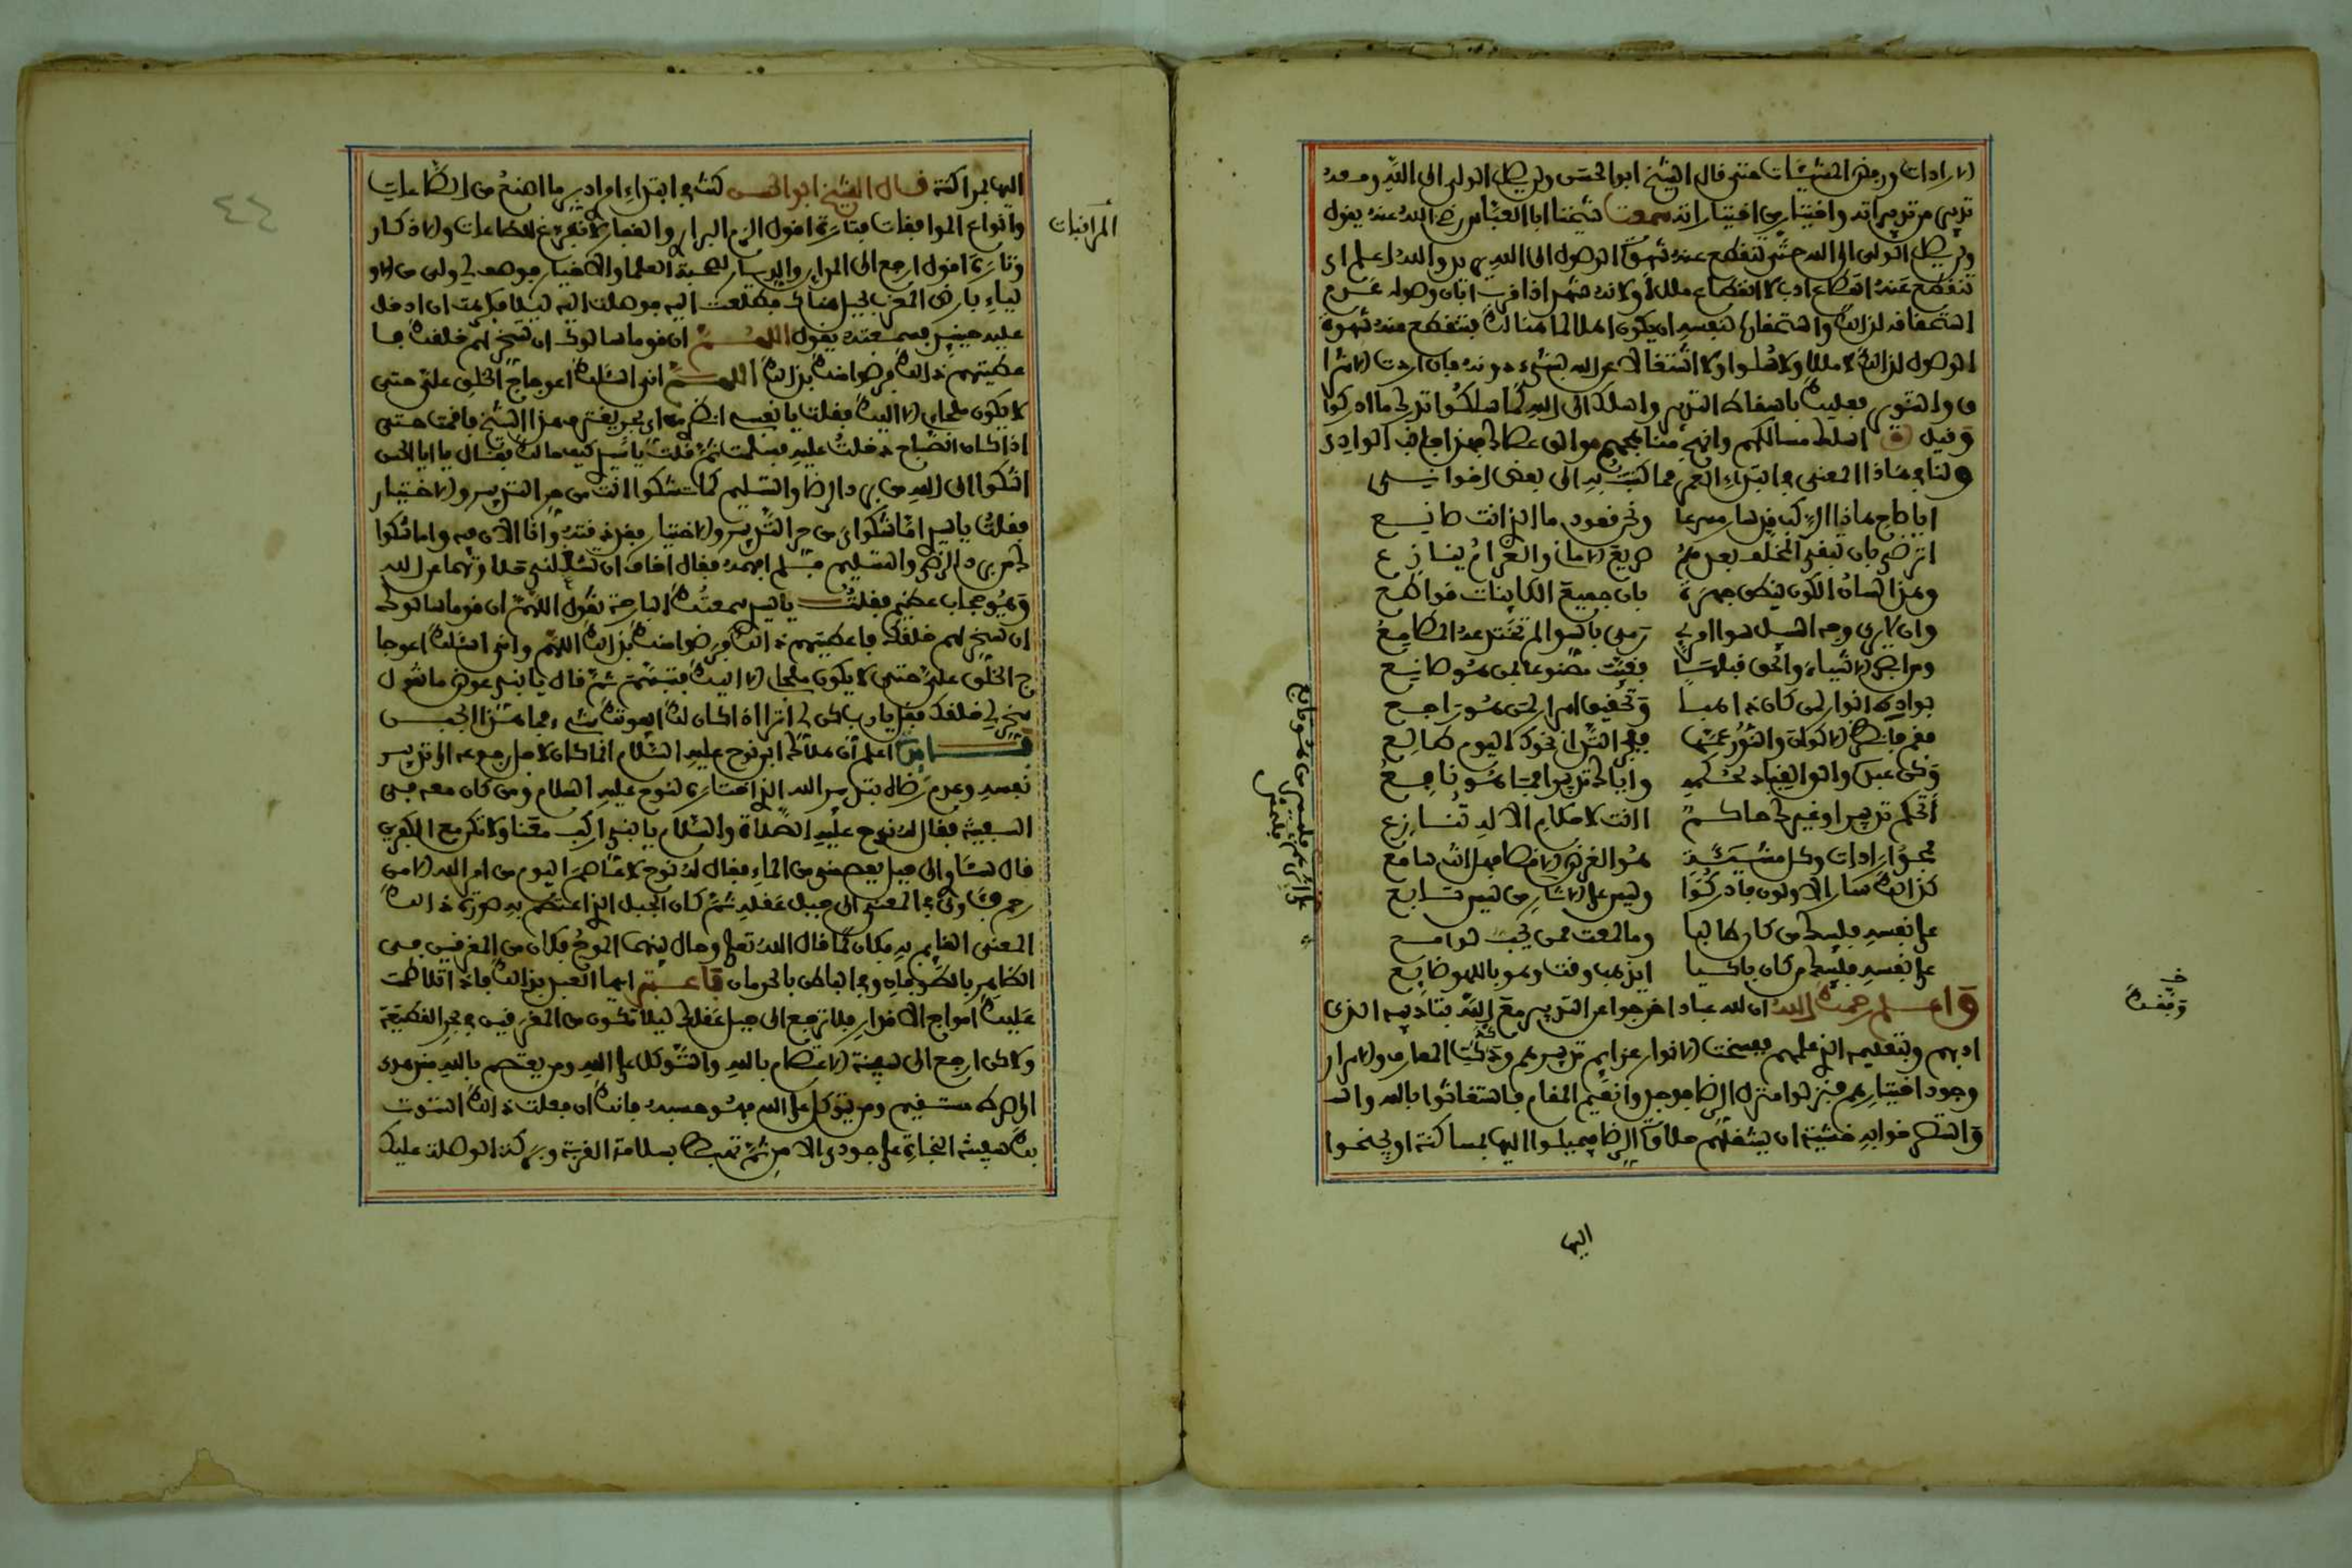 الارادات ورفض المشيئات حتى قال الشيخ ابو الحسن ولن يصل الولي الى الله ومعه
تدبير من تدبيراته واختيار من اختياراته سمعت شيخنا ابا العباس رضي الله عنه يقول
ولن يصل الولي الى الله حتى تنقطع عنه شهوة الوصول الى الله يريد والله اعلم اي
تنقطع عنه انقطاع ادب لا انقطاع ملل أو لانه يشهد اذا قرب ابان وصوله عدم
استحقاقه لذالك واستحقارا لنفسه ان يكون اهلا لما هنالك فتنقطع عنه شهوة
الوصول لذالك لا مللا ولا سلوا ولا اشتغالا عن الله بشيء دونه فان اردت الاشرا
ق والتنوير فعليك باسقاط التدبير واسلك الى الله كما سلكوا تدرك ما ادركوا
وقيل اسلك مسالكهم وانهج مناهجهم والق عصاك فهذا جانب الوادي
ولنا في هاذا المعنى في ابتداء العمر مما كتبت به الى بعض اخواني
ايا صاح هاذا الركب قد سار مسرعا ونحن قعود ما الذي انت صانع
اترضى بان تبقى المخلف بعدهم صريع الاماني والغرام ينازع
وهذا لسان الكون ينطق جهرة بان جميع الكائنات قواطع
وان لا يرى وجه السبيل سوى امرئ رمى بالسوى لم تختدعه المطامع
ومن ابصر الاشياء والحق قبلها فغيب مصنوعا بمن هو صانع
بواده انوار لمن كان ذاهبا وتحقيق اسرار لمن هو راجع
فقم فانظر الاكوان والنور عمها ففجر التداني نحوك اليوم طالع
وكن عبده والق القياد لحكمه واياك تدبيرا فما هو نافع
أتحكم تدبيرا وغيرك حاكم اانت لاحكام الاله تنازع
فمحو ارادات وكل مشيئة هو الغرض الاقصى فهل انت سامع
كذالك سار الاولون فادركوا وليس على الاثار من ليس تابع
على نفسه فليبك من كان طالبا وما لمعت ممن يحب لوامع
على نفسه فليبك من كان باكيا ايذهب وقت وهو باللهو ضائع
واعلم رحمك الله ان لله عبادا خرجوا عن التدبير مع الله بتاديبه الذي
ادبهم وبتعليمه الذي علمهم ففسخت الانوار عزائم تدبيرهم ودكت المعارف والاسرار
وجود اختيارهم فنزلوا منزل الرضا فوجدوا نعيم المقام فاستغاثوا بالله واستـ
خوا به خشية ان يشغلهم حلاوة الرضا فيميلوا اليها بمساكنة او يجنحوا
اليها
وقفك
اليها بمراكنة قال الشيخ ابو الحسن كنت في ابتداء امري ادبر ما اصنع من الطاعات
وانواع الموافقات فتارة اقول الزم البراري والقفار لاتفرغ للطاعات والاذكار
وتارة اقول ارجع الى المدائن والديار لصحبة العلماء والاخيار فوصف لي ولي من الاو
لياء بارض المغرب بجبل هناك فطلعت اليه فوصلت اليه ليلا فكرهت ان ادخل
عليه حينئذ فسمعته يقول اللهم ان قوما سالوك ان تسخر لهم خلقك فا
عطيتهم ذالك فرضوا منك بذالك اللهم اني اسئلك اعوجاج الخلق علي حتى
لا يكون ملجاي الا اليك فقلت يا نفسي انظري من اي بحر يغترف هذا الشيخ فاقمت حتى
اذا كان الصباح دخلت عليه فسلمت ثم قلت يا سيدي كيف حالك فقال يا ابا الحسن
اشكوا الى الله من برد الرضا والتسليم كما تشكوا انت من حر التدبير والاختيار
فقلت يا سيدي اما شكواي من حر التدبير والاختيار فقد ذقته وانا الان فيه واما شكوا
ك من برد الرضى والتسليم فلم افهمه فقال اخاف ان تشغلني حلاوتهما عن الله
وهو حجاب عظيم فقلت يا سيدي سمعتك البارحة تقول اللهم ان قوما سالوك
ان تسخر لهم خلقك فاعطيتهم ذالك فرضوا منك بذالك اللهم واني اسئلك اعوجا
ج الخلق علي حتى لا يكون ملجاي الا اليك فتبسم ثم قال يا بني عوض ما تقول
سخر لي خلقك فقل يا رب كن لي اترى اذا كان لك ايفوتك شيء فما هذا الجبن
اعلم أن هلاك ابن نوح عليه السلام انما كان لاجل رجوعه الى تدبير
نفسه وعدم رضاه بتدبير الله الذي اختاره لنوح عليه السلام ومن كان معه في
السفينة فقال له نوح عليه الصلاة والسلام يا بني اركب معنا ولا تكن مع الكافرين
قال سئاوي الى جبل يعصمني من الماء فقال له نوح لا عاصم اليوم من امر الله الا من
رحم فئاوى في المعنى الى جبل عقله ثم كان الجبل الذي اعتصم به صورة ذالك
المعنى القائم به فكان كما قال الله تعالى وحال بينهما الموج فكان من المغرقين في
الظاهر بالطوفان وفي الباطن بالحرمان فاعتبر ايها العبد بذالك فاذا تلاطمت
عليك امواج الاقدار فلا ترجع الى جبل عقلك ليلا تكون من المغرقين في بحر القطيعة
ولاكن ارجع الى سفينة الاعتصام بالله والتوكل على الله ومن يعتصم بالله فقد هدي
الى صراط مستقيم ومن يتوكل على الله فهو حسبه فانك ان فعلت ذالك استوت
بك سفينة النجاة على جودي الامن ثم تهبط بسلامة القربة وبركة الوصلة عليك
المراقبات
٤٤